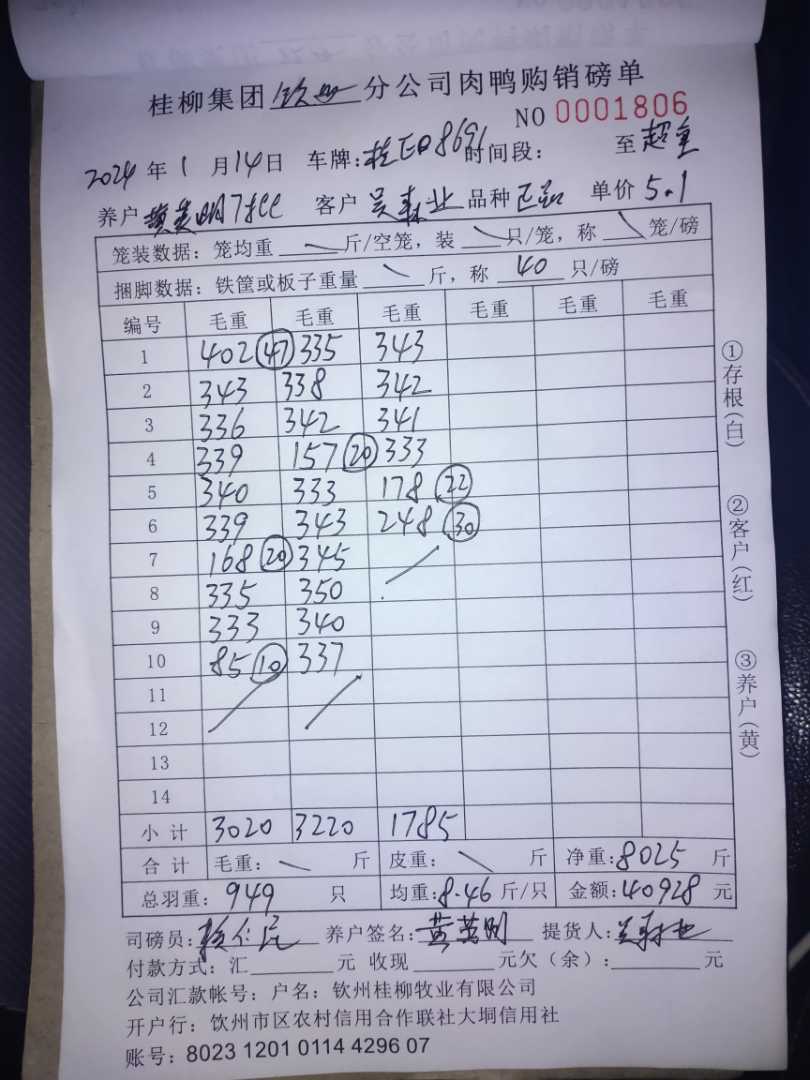 桂柳集团 钦州 分公司肉鸭购销磅单
NO 0001806
2024 年 1 月 14 日 车牌: 桂E08691 时间段: 至 超重
养户 黄英明 客户 吴森业 品种 正品 单价 5.1
笼装数据: 笼均重 斤/空笼, 装 只/笼, 称 笼/磅
捆脚数据: 铁筐或板子重量 斤, 称 40 只/磅
编号 毛重 毛重 毛重 毛重 毛重 毛重
1 402 (47) 335 343
2 343 338 342
3 336 342 341
4 339 157 (20) 333
5 340 333 178 (22)
6 339 343 248 (30)
7 168 (20) 345
8 335 350
9 333 340
10 85 (10) 337
11
12
13
14
小计 3020 3220 1785
合计 毛重: 斤 皮重: 斤 净重: 8025 斤
总羽重: 949 只 均重: 8.46 斤/只 金额: 40928 元
司磅员: 养户签名: 黄英明 提货人: 吴森业
付款方式: 汇 元 收现 元欠(余): 元
公司汇款帐号: 户名: 钦州桂柳牧业有限公司
开户行: 钦州市区农村信用合作联社大垌信用社
账号: 8023 1201 0114 4296 07
①存根(白)
②客户(红)
③养户(黄)